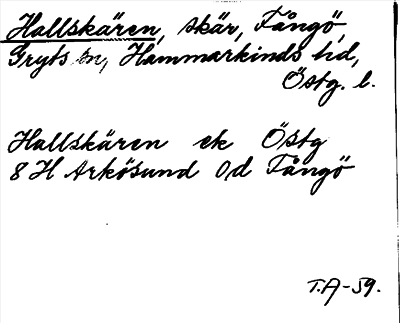 Hallskären, skär, Fångö,
Gryts sn, Hammarkinds hd,
Östg. l.
Hallskären ek Östg
8 H Arkösund 0d Fångö
T.A-59.